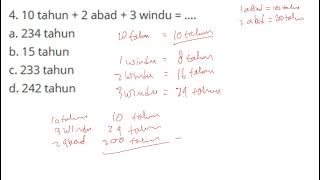 4. 10 tahun + 2 abad + 3 windu = ....
a. 234 tahun
b. 15 tahun
c. 233 tahun
d. 242 tahun
10 tahun = 10 tahun
1 windu = 8 tahun
2 windu = 16 tahun
3 windu = 24 tahun
1 abad = 100 tahun
2 abad = 200 tahun
10 tahun 10 tahun
3 windu 24 tahun
2 abad 200 tahun